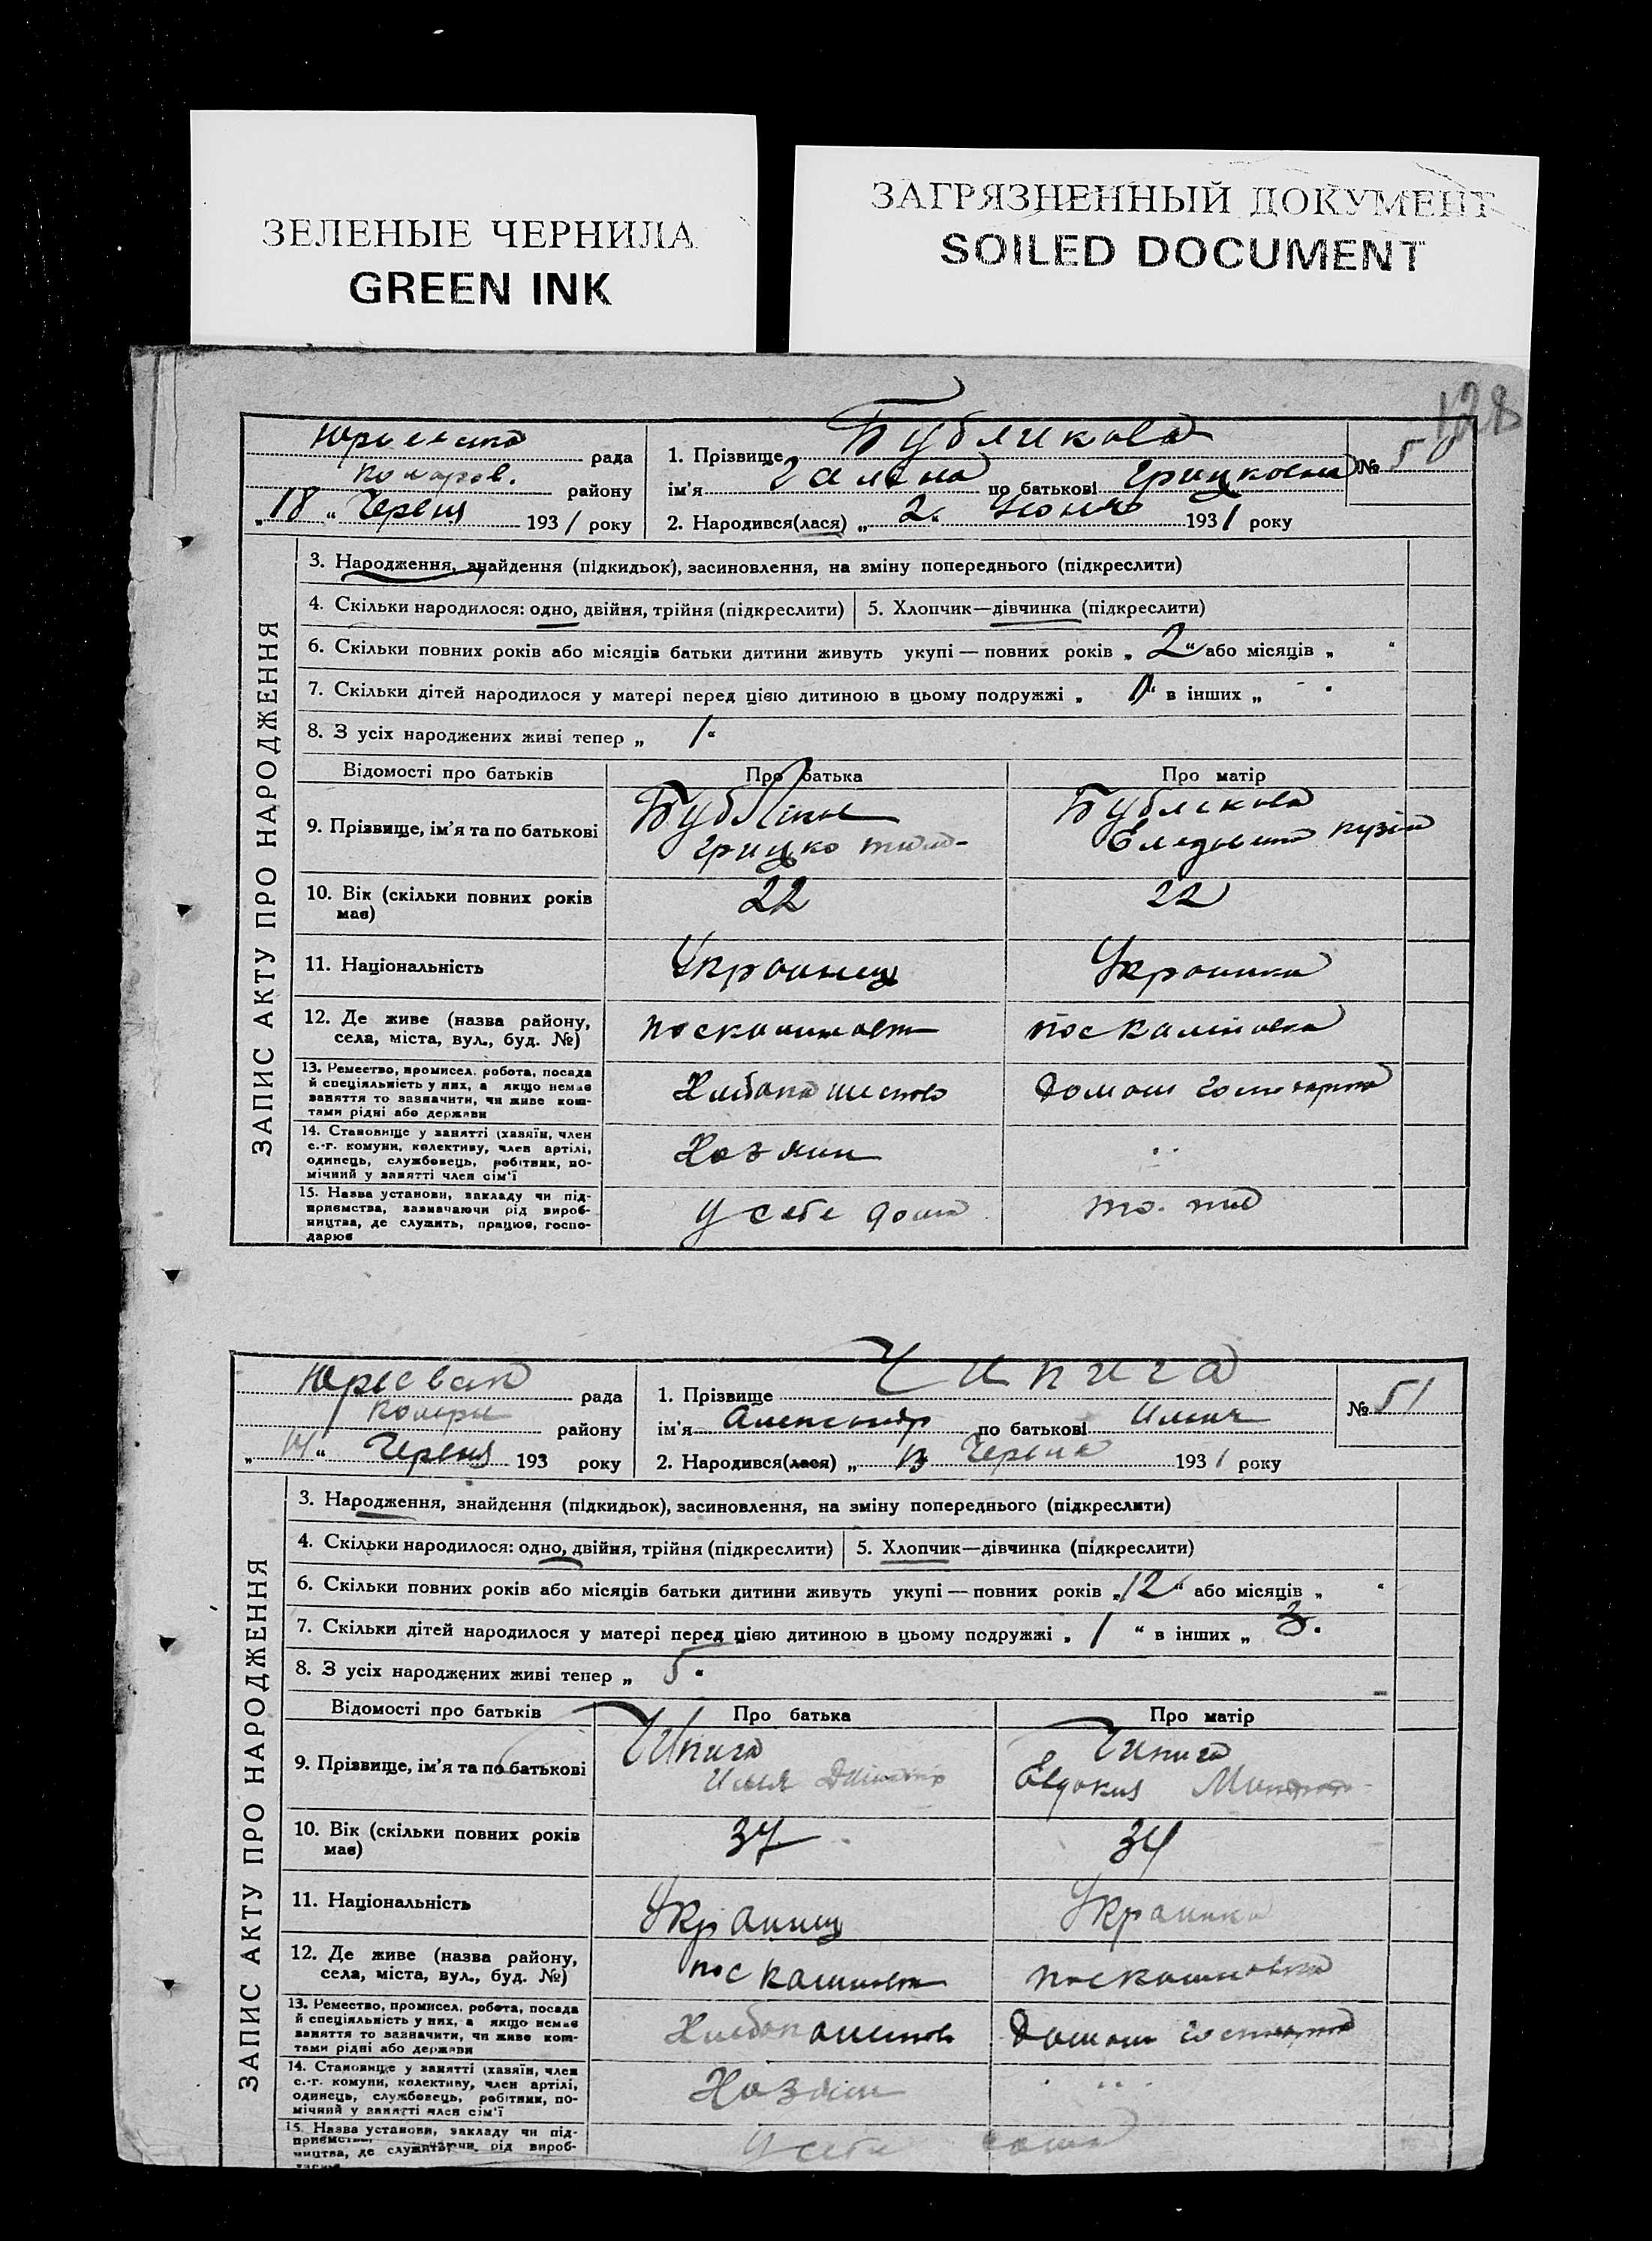 ЗЕЛЕНЫЕ ЧЕРНИЛА
GREEN INK
ЗАГРЯЗНЕННЫЙ ДОКУМЕНТ
SOILED DOCUMENT
128
рада
района
району
„18“ Червня 1931 року
1. Прізвище Бубликова
ім'я Галина по батькові Грицковна
2. Народився(лася) „2“ Июня 1931 року
№ 50
ЗАПИС АКТУ ПРО НАРОДЖЕННЯ
3. Народження, знайдення (підкидьок), засиновлення, на зміну попереднього (підкреслити)
4. Скільки народилося: одно, двійня, трійня (підкреслити) 5. Хлопчик—дівчинка (підкреслити)
6. Скільки повних років або місяців батьки дитини живуть укупі — повних років „2“ або місяців „ “
7. Скільки дітей народилося у матері перед цією дитиною в цьому подружжі „ “ в інших „ -
8. З усіх народжених живі тепер „1“
Відомості про батьків Про батька Про матір
9. Прізвище, ім'я та по батькові
Грицко
Бубликова
10. Вік (скільки повних років має) 22 22
11. Національність Украинец Украинка
12. Де живе (назва району, села, міста, вул., буд. №)
13. Ремество, промисел, робота, посада
й спеціяльність у них, а якщо немає
заняття то зазначити, чи живе кош-
тами рідні або держави
14. Становище у занятті (хазяїн, член
с.-г. комуни, колективу, член артілі,
одинець, службовець, робітник, по-
мічний у занятті член сім'ї
Хазяин
15. Назва установи, закладу чи під-
приємства, зазначаючи рід вироб-
ництва, де служить, працює, госпо-
дарює
у себе дома
рада
району
„14“ Червня 193 року
1. Прізвище Чипига
ім'я Александр по батькові Илич
2. Народився(лася) „13 Червня 1931 року
№ 51
ЗАПИС АКТУ ПРО НАРОДЖЕННЯ
3. Народження, знайдення (підкидьок), засиновлення, на зміну попереднього (підкреслити)
4. Скільки народилося: одно, двійня, трійня (підкреслити) 5. Хлопчик—дівчинка (підкреслити)
6. Скільки повних років або місяців батьки дитини живуть укупі — повних років „12“ або місяців „ “
7. Скільки дітей народилося у матері перед цією дитиною в цьому подружжі „1“ в інших „3.
8. З усіх народжених живі тепер „5“
Відомості про батьків Про батька Про матір
9. Прізвище, ім'я та по батькові
Чипига Чипига
Илия Евдокия
10. Вік (скільки повних років має) 37 34
11. Національність Украинец Украинка
12. Де живе (назва району, села, міста, вул., буд. №)
13. Ремество, промисел, робота, посада
й спеціяльність у них, а якщо немає
заняття то зазначити, чи живе кош-
тами рідні або держави
14. Становище у занятті (хазяїн, член
с.-г. комуни, колективу, член артілі,
одинець, службовець, робітник, по-
мічний у занятті член сім'ї
Хазяин
15. Назва установи, закладу чи під-
приємства, зазначаючи рід вироб-
ництва, де служить
у себе дома